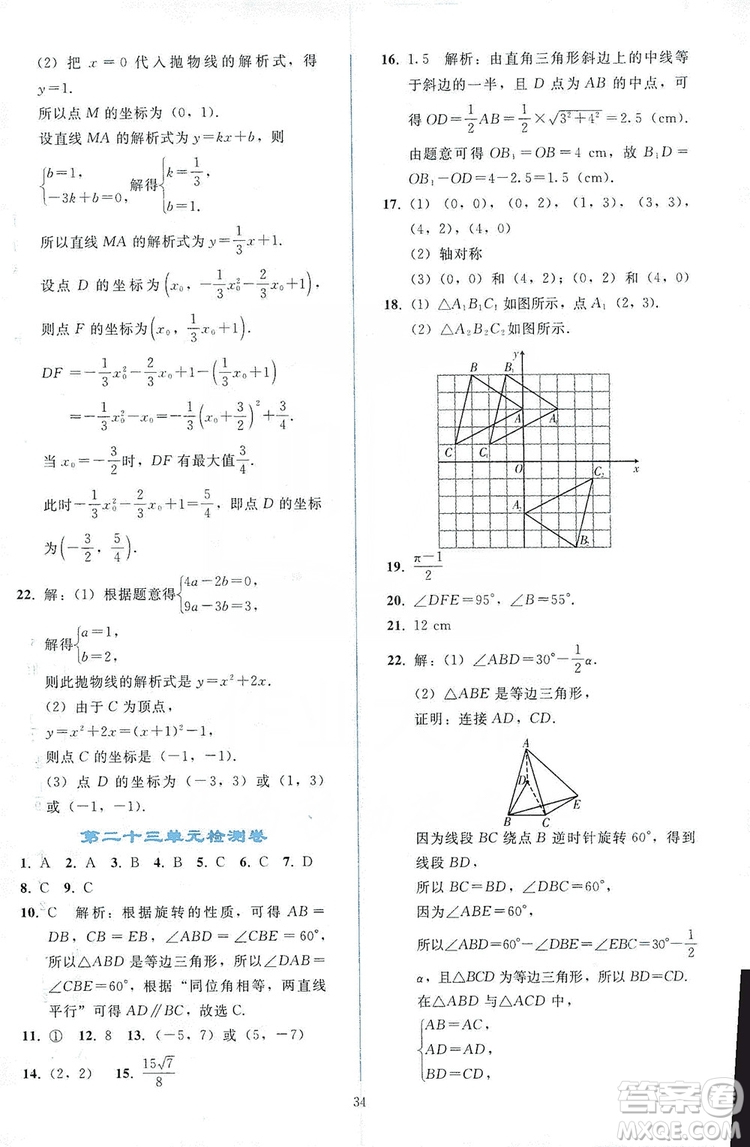 (2) 把 x=0 代入抛物线的解析式,得
y=1.
所以点 M 的坐标为(0,1).
设直线 MA 的解析式为 y=kx+b,则
{b=1, -3k+b=0, 解得{k=1/3, b=1.
所以直线 MA 的解析式为 y=1/3x+1.
设点 D 的坐标为(x₀, -1/3x₀²-2/3x₀+1)
则点 F 的坐标为(x₀, 1/3x₀+1)
DF=-1/3x₀²-2/3x₀+1-(1/3x₀+1)
=-1/3x₀²-x₀=-1/3(x₀+3/2)²+3/4
当 x₀=-3/2时,DF 有最大值3/4.
此时-1/3x₀²-2/3x₀+1=5/4,即点 D 的坐标
为(-3/2, 5/4).
22. 解:(1) 根据题意得{4a-2b=0, 9a-3b=3,
解得{a=1, b=2,
则此抛物线的解析式是 y=x²+2x.
(2) 由于 C 为顶点,
y=x²+2x=(x+1)²-1,
则点 C 的坐标是(-1,-1).
(3) 点 D 的坐标为(-3,3)或(1,3)
或(-1,-1).
第二十三单元检测卷
1. A 2. A 3. B 4. B 5. A 6. C 7. D
8. C 9. C
10. C 解析:根据旋转的性质,可得 AB=
DB,CB=EB,∠ABD=∠CBE=60°,
所以△ABD 是等边三角形,所以∠DAB=
∠CBE=60°,根据“同位角相等,两直线
平行”可得 AD∥BC,故选 C.
11. ① 12. 8 13. (-5,7)或(5,-7)
14. (2,2) 15. 15√7/8
16. 1.5 解析:由直角三角形斜边上的中线等
于斜边的一半,且 D 点为 AB 的中点,可
得 OD=1/2AB=1/2×√(3²+4²)=2.5(cm).
由题意可得 OB₁=OB=4 cm,故 B₁D=
OB₁-OD=4-2.5=1.5(cm).
17. (1) (0,0),(0,2),(1,3),(3,3),
(4,2),(4,0)
(2) 轴对称
(3) (0,0)和(4,2);(0,2)和(4,0)
18. (1) △A₁B₁C₁ 如图所示,点 A₁(2,3).
(2) △A₂B₂C₂ 如图所示.
y
B B₁
A A₁
C C₁
O x
C₂
A₂
B₂
19. π-1/2
20. ∠DFE=95°,∠B=55°.
21. 12 cm
22. 解:(1) ∠ABD=30°-1/2α.
(2) △ABE 是等边三角形,
证明:连接 AD,CD.
A
D
E
B C
因为线段 BC 绕点 B 逆时针旋转 60°,得到
线段 BD,
所以 BC=BD,∠DBC=60°.
因为∠ABE=60°,
所以∠ABD=60°-∠DBE=∠EBC=30°-1/2
α,且△BCD 为等边三角形,所以 BD=CD.
在△ABD 与△ACD 中,
{AB=AC,
AD=AD,
BD=CD,
34